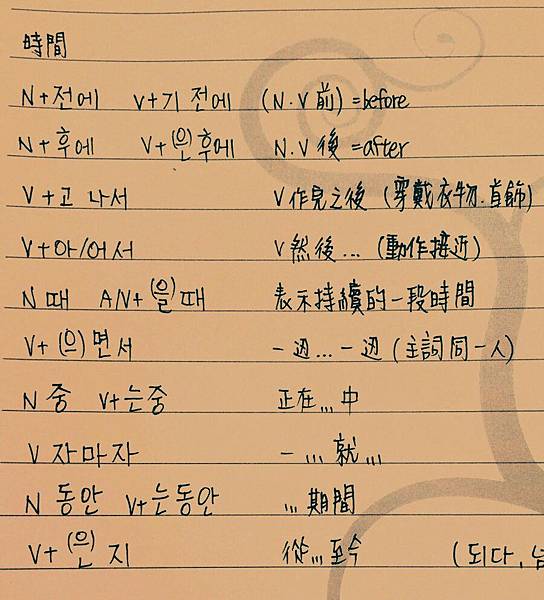 時間
N+전에 V+기 전에 (N.V前)=before
N+후에 V+(은)후에 N.V後=after
V+고 나서 V作完之後 (穿戴衣物.首飾)
V+아/어서 V然後... (動作接近)
N때 A/V+(을)때 表示持續的一段時間
V+(으)면서 一边...一边(主詞同一人)
N중 V+는중 正在...中
V자마자 一...就...
N동안 V+는동안 ...期間
V+(은)지 從...至今 (되다,넘